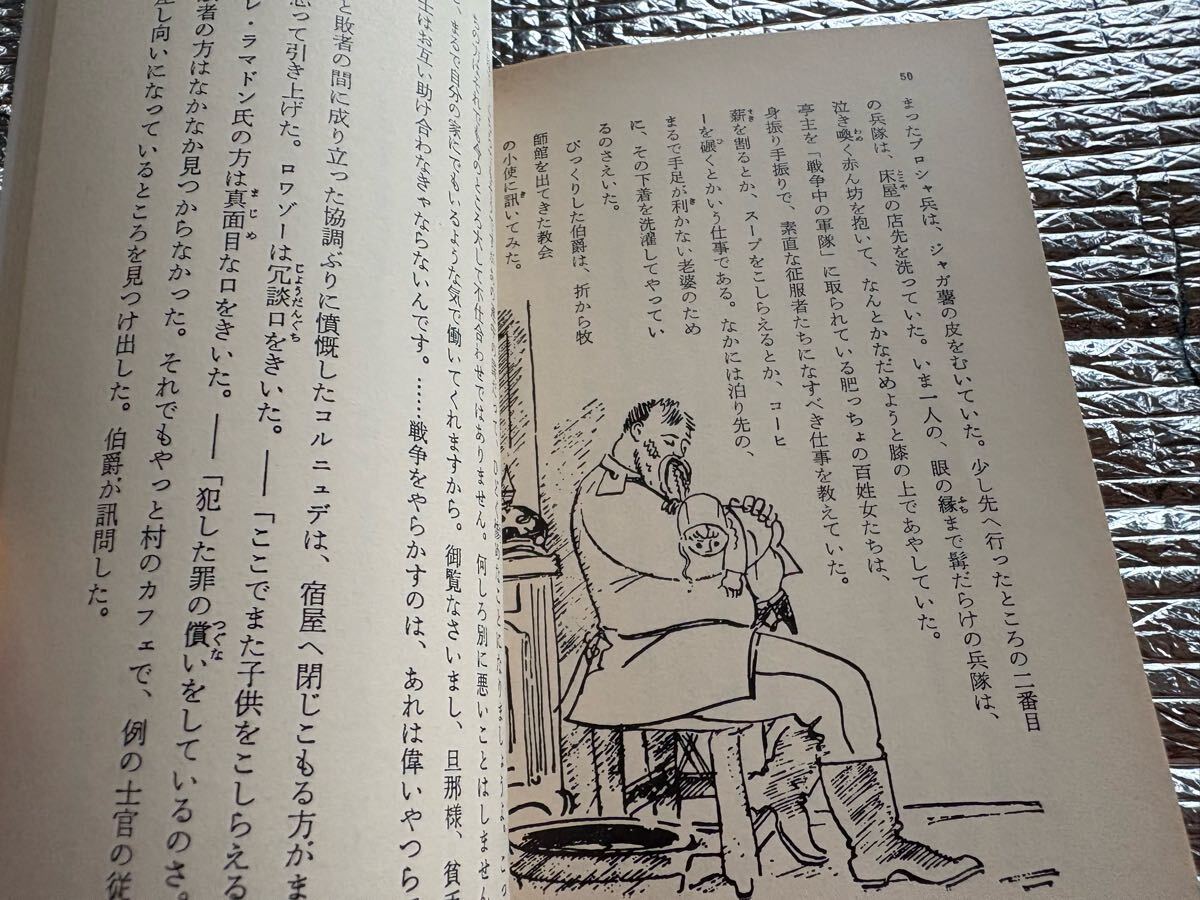 50
まったプロシャ兵は、ジャガ薯の皮をむいていた。少し先へ行ったところの二番目
の兵隊は、床屋の店先を洗っていた。いま一人の、眼の縁まで髯だらけの兵隊は、
泣き喚く赤ん坊を抱いて、なんとかなだめようと膝の上であやしていた。
亭主を「戦争中の軍隊」に取られている肥っちょの百姓女たちは、
身振り手振りで、素直な征服者たちになすべき仕事を教えていた。
薪を割るとか、スープをこしらえるとか、コーヒ
ーを碾くとかいう仕事である。なかには泊り先の、
まるで手足が利かない老婆のため
に、その下着を洗濯してやってい
るのさえいた。
びっくりした伯爵は、折から牧
師館を出てきた教会
の小使に訊いてみた。
して不仕合わせではありません。何しろ別に悪いことはしません
、まるで自分の家にでもいるような気で働いてくれますから。御覧なさいまし、旦那様、貧
士はお互い助け合わなきゃならないんです。……戦争をやらかすのは、あれは偉いやつら
と敗者の間に成り立った協調ぶりに憤慨したコルニュデは、宿屋へ閉じこもる方がま
思って引き上げた。ロワゾーは冗談口をきいた。――「ここでまた子供をこしらえる
レ・ラマドン氏の方は真面目な口をきいた。――「犯した罪の償いをしているのさ。
者の方はなかなか見つからなかった。それでもやっと村のカフェで、例の士官の従
差し向いになっているところを見つけ出した。伯爵が訊問した。